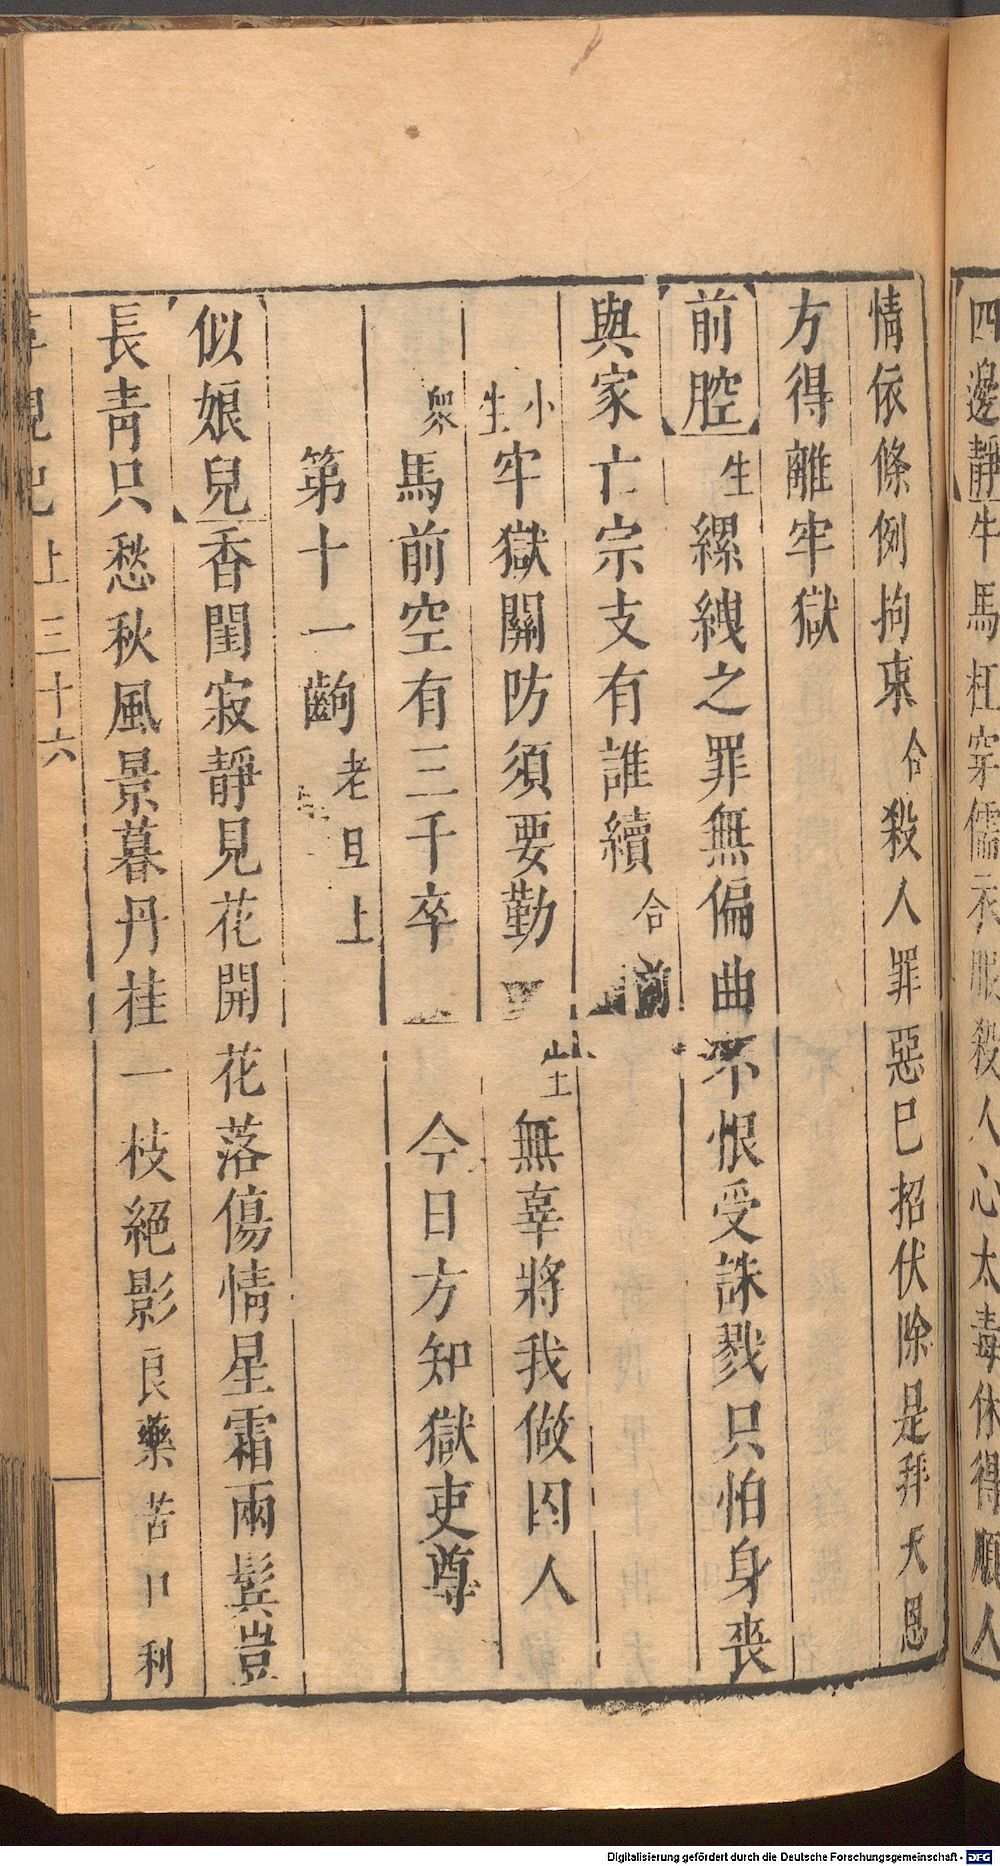 四邊靜牛馬杠穿儒衣服殺人心太毒休得順人
情依條例拘束合殺人罪惡巳招伏除是拜天恩
方得離牢獄
前腔生縲絏之罪無偏曲不恨受誅戮只怕身喪
與家亡宗支有誰續合前
小生牢獄關防須要勤 生無辜將我做囚人
眾馬前空有三千卒 今日方知獄吏尊
第十一齣老旦上
似娘兒香閨寂靜見花開花落傷情星霜兩鬢豈
長靑只愁秋風景暮丹桂一枝絕影良藥苦口利
上三十六
Digitalisierung gefördert durch die Deutsche Forschungsgemeinschaft - DFG